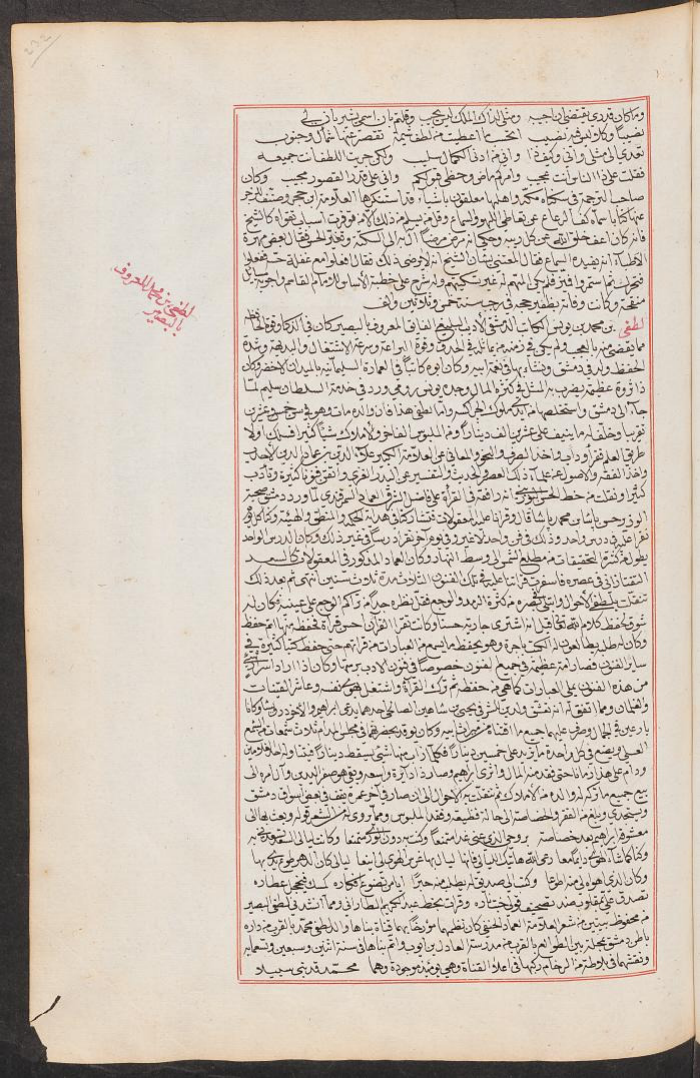 232
وما كان قدري يقتضي ان اجيبه ومثلي لذاك الملك ليس يجيب وقلتم بان اسمي يشير بان لي
نصيبا وكل للوشر نصيب
تعدى الى مثلي واني وكيف ذا واني من ادنى الكمال سليب ولكن حويت اللطفات جميعه
فقلت على ذا واني على قدر القصور مجيب وكان
صاحب الترجمة في سكناه مكة واهلها معلقون بالشباك قد استنكرها العلامة ابن حجر وصنف للزجر
عنها كتابا سماه كف الرعاع عن تعاطي اللهو والسماع وقلم يسلم من ذلك الامر فوقرت اسباب تقواه كالشيخ
فانه كان اعف خلق الله عن كل ريبة وحكي انه مرض مرضا آل به الى السكتة فقال بعض مهرة
الاطباء انه يفيده السماع فقال المعتنى بشان الشيخ انه لا يرضى ذلك فقال افعلوا مع غفلة حسه ففعلوا
فتحرك ثم استمر وافق فلم يكن المتهم له غير تسكيتهم وله شرح على خطبة الاساس للامام القاسم واجوبة مسائل
منيفة وكانت وفاته بظفير حجة في رجب سنة خمس وثلاثين والف
لطفي بن محمد بن يونس الكاتب الدمشقي الاديب البارع الفايق المعروف بالبصير كان في الذكا وقوة الحافظة
مما يقضى منه بالعجب ولم يكن في زمنه من يماثله في الحذق وقوة البراعة وسرعة الاشتغال والبديهة وشدة
الحفظ ولد في دمشق ونشا بها في نعمة ابيه وكان ابوه كاتبا في العمارة السليمانية بالميدان الاخضر وكان
ذا ثروة عظيمة يضرب به المثل في كثرة المال وجده يونس رومي ورد في خدمة السلطان سليم لما
جاء الى دمشق واستخلصها من ايدي ملوك الجراكسة واما لطفي هذا فان والده مات وهو في سن خمس وعشرين
تقريبا وخلف له ما ينيف على عشرين الف دينار ومن الملبوس الفاخر والاملاك شيا كثيرا فسلك اولا
طريق العلم فقرا وداب واخذ الصرف والنحو والمعاني عن العلامة الكبير علاء الدين بن عماد الدين
واخذ الفقه والاصول عن علماء ذلك العصر والحديث والتفسير عن البدر الغزي واتقن فنونا كثيرة وتادب
كثيرا ونقلت من خط الحسن البوريني انه رافقه في القراة على فاضل الشرق العماد السمرقندي لما ورد دمشق صحبة
الوزير حسن باشا بن محمد باشا قال وقرانا عليه المعقولات فتشاركنا في هداية الحكمة والمنطق والهيئة وكنا كل يوم
نقرا عليه في درس واحد وذلك في فن واحد لا غير وفي يوم اخر نقرا درسا في غير ذلك وكان الدرس الواحد
يطول من كثرة التحقيقات من مطلع الشمس الى وسط النهار وكان العماد المذكور في المعقولات كالسعد
التفتازاني في عصره فاستمرت قراتنا عليه في تلك الفنون الثلاث مدة ثلاث سنين انتهى ثم بعد ذلك
تنقلت بلطفي الاحوال وابتلي بكثرة الرمد والوجع فقل نظره جدا من تراكم الوجع على عينيه وكان له
شوق لحفظ كلام الله تعالى قيل انه اشترى جارية حسنا وكانت تقرا القران احسن قراة فحفظه منها ثم حفظ
وكان من يطالعون له الكتب باجرة وهو يحفظ ما يسمع من العبارات من قراتهم حتى حفظ كتبا كثيرة في
ساير الفنون فصار امة عظيمة في جميع الفنون خصوصا في فنون الادب برمتها وكان اذا اراد اسراد شيء
من هذه الفنون يملي العبارات كما هي من حفظه ثم ترك القراة واشتغل بهوى نفسه وعاشر القينات
والغلمان ومما اتفق له انه تعشق ولدين لشريحي بن شاهين الصالحي احدهما يدعى ابراهيم والاخر درويش وكانا
بارعين في الجمال وصرف عليهما جميع ما اقتناه من ميراث ابيه وكان يوقد بحضرتهما في مجلس المدام ثلاث شمعات من الشمع
العسلي ويضع في كل واحدة ما يزيد على خمسين دينارا فكلما ذاب منها شيء يسقط دينار فيتناوله الملا من
ودام على هذا زمانا حتى نفد منه المال واثرى ابراهيم وصار ذا دايرة واسعة وبقي هو صفر اليدين وآل امره الى
بيع جميع ما تركه له والده من الاملاك ثم تنقلت به الاحوال الى ان صار في اخر عمره يقف في بعض اسواق دمشق
ويستجدي وبلغ من الفقر والخصاصة الى حالة فظيعة وفقد الملبوس ومما يروى له من الشعر قوله وبعث بها الى
معشوقه ابراهيم بعد خصاصة بروحي الذي عني غدا متمنعا وكنت به دون الورى متمتعا وكانت ليالي السعد تجري به
وكنا كما شاء الهوى دايما معا رعى الله هاتيك الليالي فانها ليال بها غرس الهوى لي اينعا ليالي كان الدهر طوع يدي بها
وكان الذي اهواه لي منه اطوعا وكتب الى صديق له يطلب منه حبرا ايا من تضوع افكاره كمسك فيخجل عطاره
تصدق علي بمقلوب ضد تصحيف قولي ختاره وقرات بخط عبد الكريم الطاراني ومما انشد في لطفي البصير
من محفوظه بيتين من شعر العلامة العماد الحنفي كان نظمهما مؤرخا بهما قناة بناها والد لطفي محمد بالقرب من داره
باطن دمشق بمحلة بين الطوالع بالقرب من مدرسة العادل بن ايوب واتم بناها في سنة اثنين وسبعين وتسعماية
ونقشهما في بلاطة من الرخام ركبها في اعلا القناة وهي يومئذ موجودة وهما محمد قد بنى سبيلا
لطفي بن محمد المعروف
بالبصير